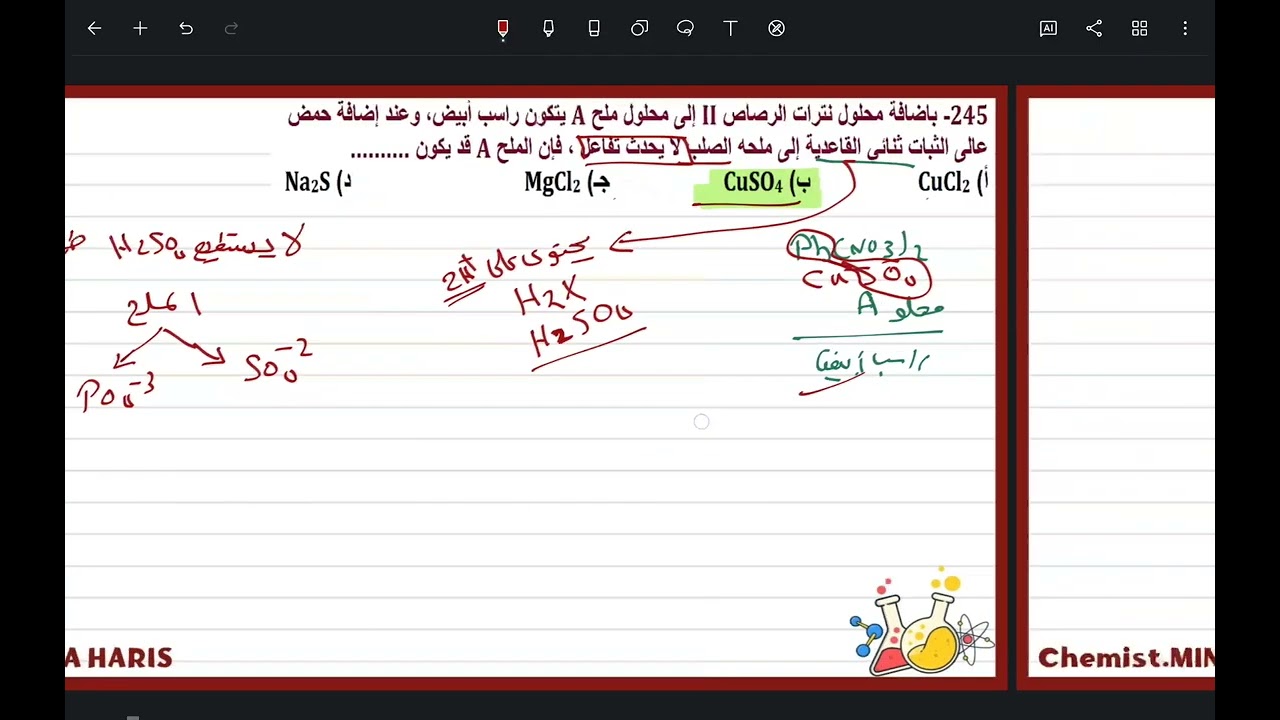 AI
245- باضافة محلول نترات الرصاص II إلى محلول ملح A يتكون راسب أبيض، وعند إضافة حمض
عالى الثبات ثنائى القاعدية إلى ملحه الصلب لا يحدث تفاعل ، فإن الملح A قد يكون ..........
أ) CuCl₂
ب) CuSO₄
جـ) MgCl₂
د) Na₂S
Pb(NO3)2
CuSO4
محلول A
راسب أبيض
يحتوى على 2H+
H2X
H2SO4
لا يستطيع H2SO4
املاح
SO4-2
PO4-3
A HARIS
Chemist.MIN